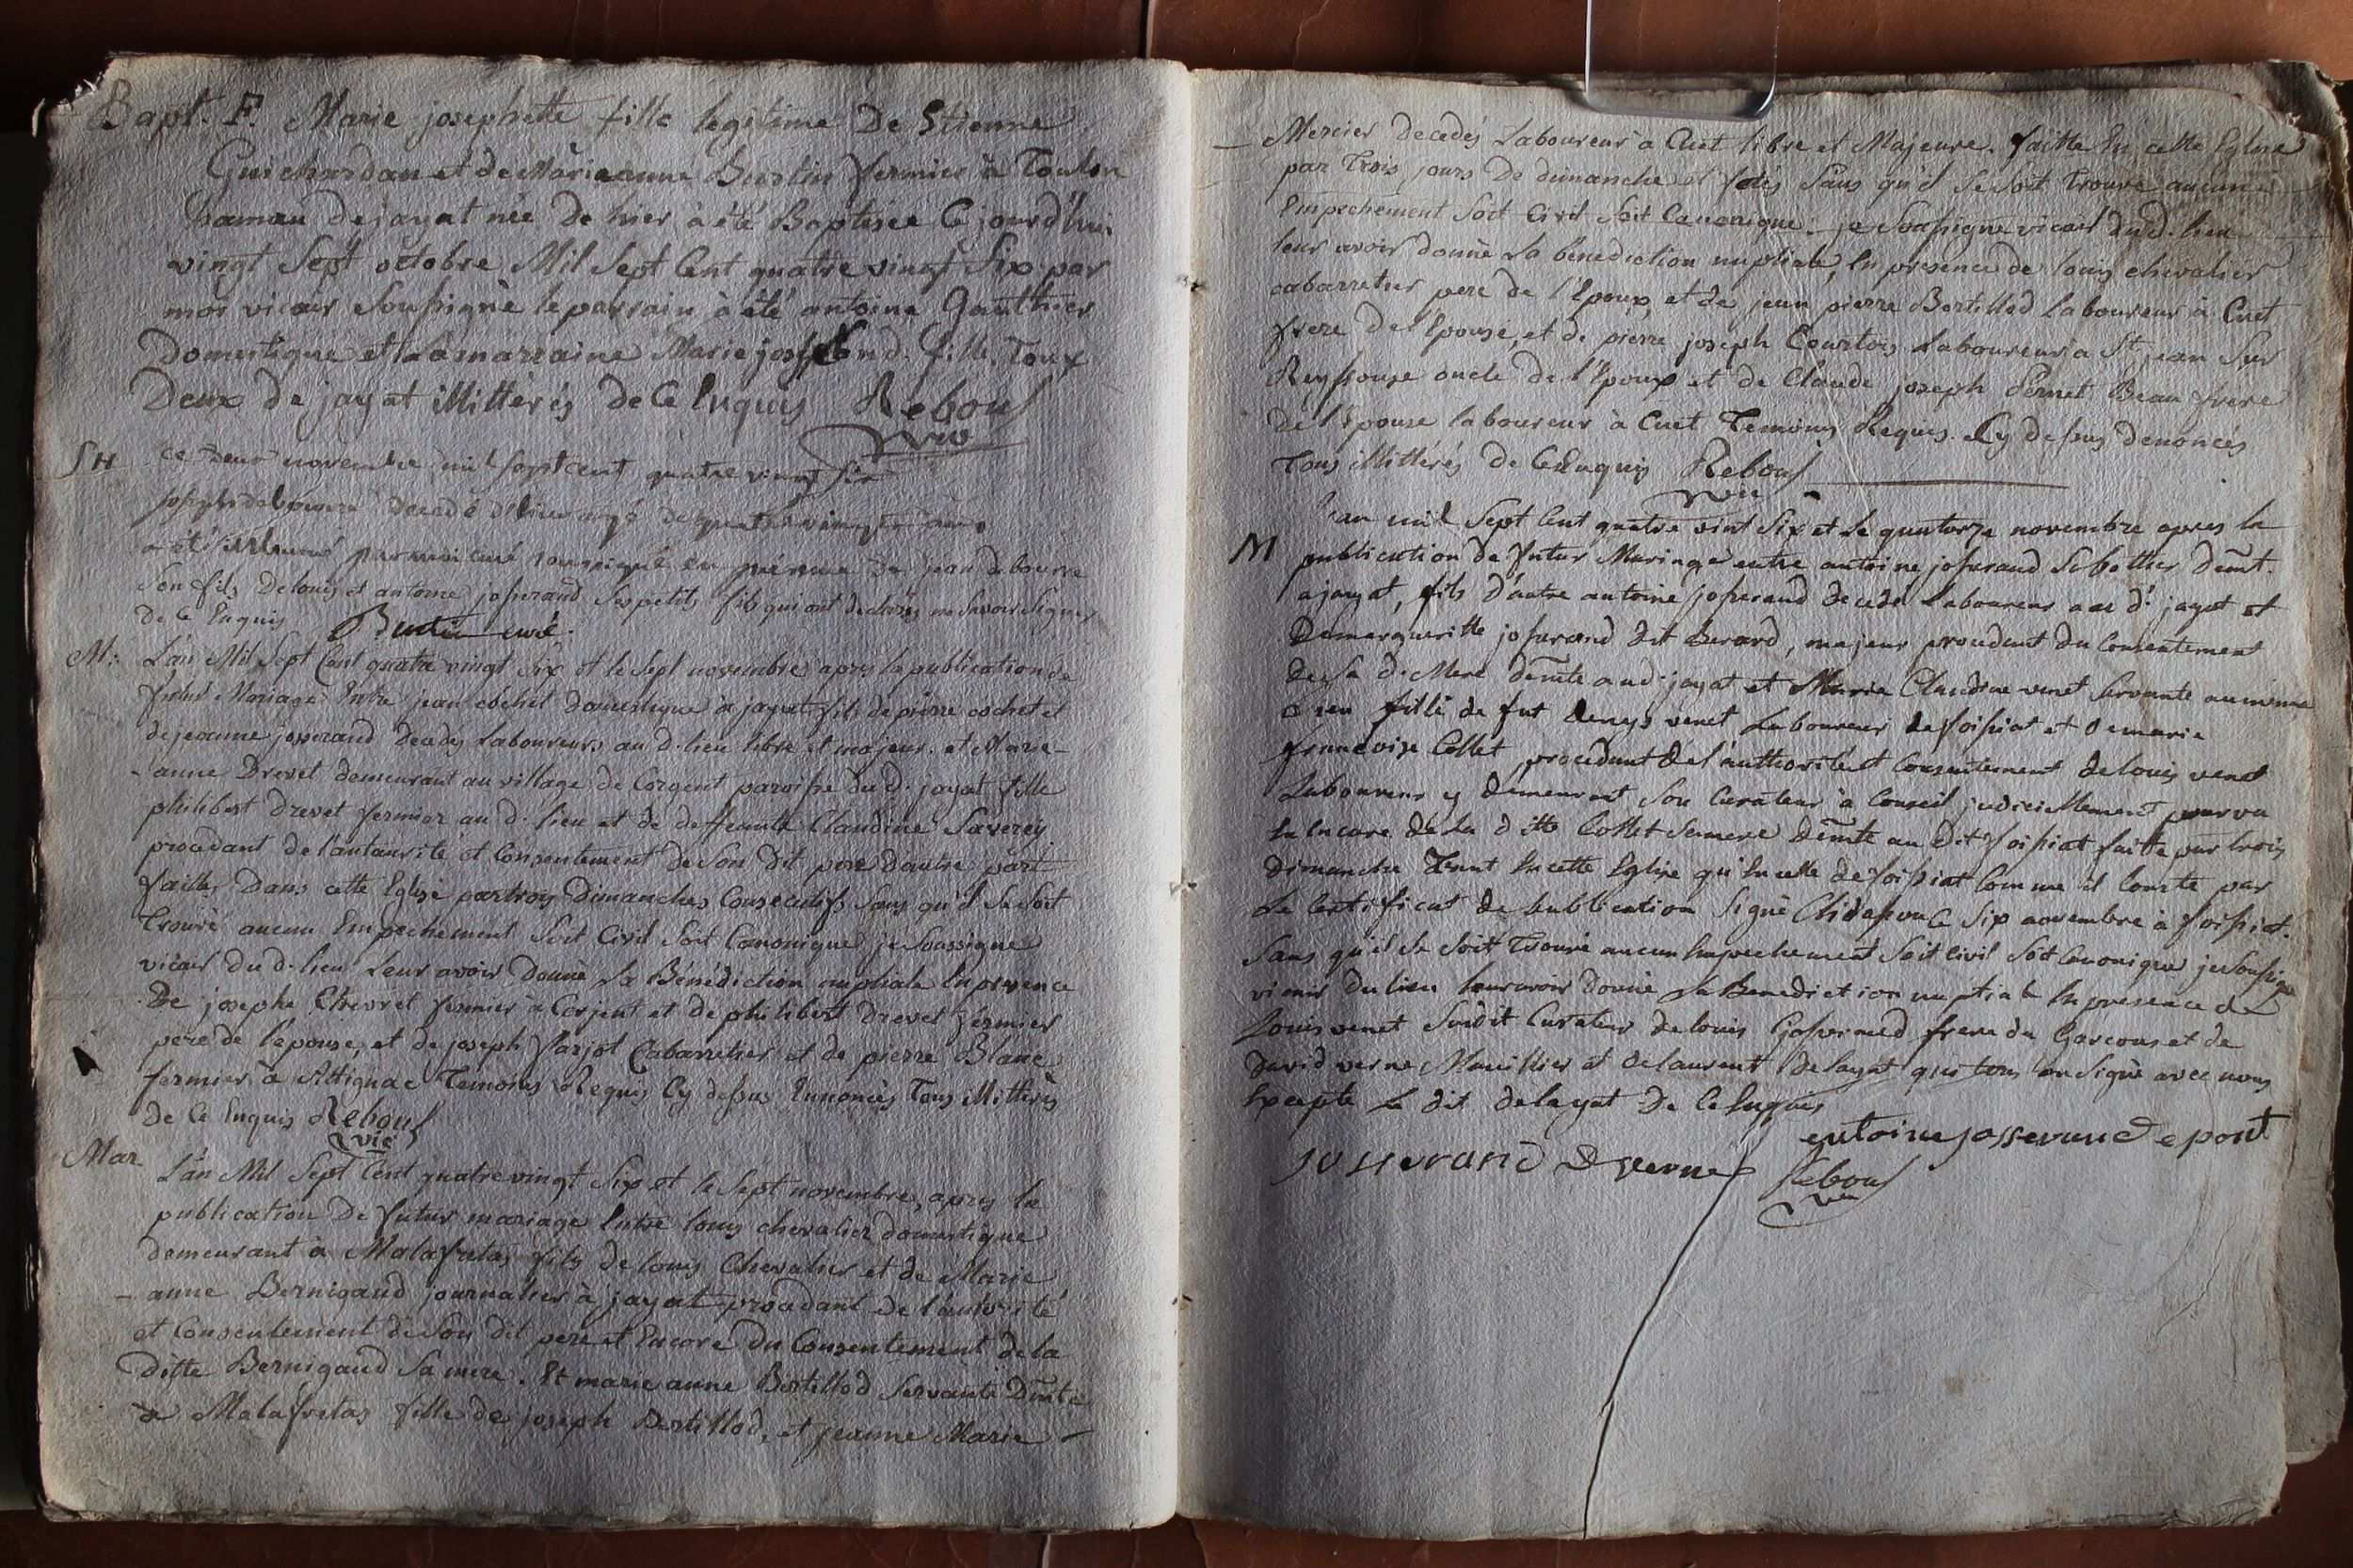 Bapt. F. Marie josephette fille legitime De Etienne
Guichardan et de Marieanne Burtin fermier à Toulon
hameau de jayat née De hier à été Baptisée Ce jourd'hui
vingt Sept octobre Mil Sept Cent quatre vingt Six par
moi vicair Soussigné le parrain à été antoine Gauthier
Domestique et La marraine Marie fille Toux
Deux de jayat illittérés de Ce Enquis Rebout
vic
SH ce deux novembre mil sept cent quatre vingt six
joseph debourre decedé d'hier agé de quatre vingts ans
a été inhumé par moi curé soussigné en présence de jean debourre
Son fils De louis et antoine josserand Ses petits fils qui ont declarés ne Savoir Signer
de Ce Enquis curé.
M: L'an Mil Sept Cent quatre vingt Six et le Sept novembre apres la publication de
futur Mariage Entre jean cochet domestique à jayat fils de pierre cochet et
de jeanne josserand decedes Laboureurs au d. lieu libre et majeur. et Marie-
-anne Drevet demeurant au village de Corgent paroisse du d. jayat fille
philibert drevet fermier au d. lieu et de deffeunte Claudine Saverey
procedant de l'autaurité et Consentement de Son Dit pere d'autre part
faittes Dans cette Eglise par trois Dimanches Consecutifs Sans qu'il Se Soit
Trouvé aucun Empechement Soit Civil Soit Canonique je Soussigne
vicair du d. lieu Leur avoir Donné La Bénédiction nuptiale En presence
De josephe Chevret fermier à Corjent et de philibert drevet fermier
pere de l'epouse, et de joseph farjot Cabarretier et de pierre Blanc
fermier à Attignac Temoins Requis Cy dessus Ennoncés Tous illittérés
de Ce Enquis Rebout
vic
Mar. L'an Mil Sept Cent quatre vingt Six et le Sept novembre, apres la
publication De futur mariage Entre louis chevalier domestique
demeurant à Malafretas fils de louis Chevalier et de Marie
- anne Bernigaud journalier à jayat procedant De l'autorité
et Consentement de Son dit pere et Encore du Consentement de la
ditte Bernigaud Sa mere. Et marie anne Bertillod Servante Dmte
à Malafretas fille de joseph Bertillod, et jeanne Marie -
- Mercier decedés Laboureur à Cuet libre et Majeure. faitte En cette Eglise
par Trois jours De dimanche et fetes Sans qu'il Se Soit Trouvé aucune
Empechement Soit Civil Soit Canonique. je Soussigné vicair du d. lieu
leur avoir donné La bénediction nuptiale, En presence de louis chevalier
cabarretier pere de l'Epoux, et de jean pierre Bertillod laboureur à Cuet
frere de l'Epouse, et de pierre joseph Courtois Laboureur à St. jean Sur
Reyssouse oncle de l'Epoux et de Claude joseph Pernet Beau frere
de l'Epouse laboureur à Cuet Temoins Requis. Cy dessus denoncés
Tous illittérés De Ce Enquis Rebout
vic
M L'an mil Sept Cent quatre vint Six et Le quatorze novembre apres la
publication de futur Mariage entre antoine josserand Sabottier Demt.
a jayat, fils d'autre antoine josserand decedé Laboureur au d. jayat et
De margueritte josserand dit Berard, majeur procedant du Consentement
de Sa d. Mere demte au d. jayat et Marie Claudine venet Servante au meme
lieu fille de fut denys venet Laboureur de foissiat et de marie
francoise Collet procedant de l'authorité et Consentement de louis venet
Laboureur y demeurant Son Curateur à Conseil judiciellement pourvu
En Encore de La ditte Collet Sa mere Demte au dit foissiat faitte par trois
Dimanche Tant En cette Eglise qu'En celle de foissiat Comme il Conste par
Le Certificat de publication Signé Ce Six novembre à foissiat.
Sans qu'il Se Soit Trouvé aucun Empechement Soit Civil Soit Canonique je Soussigné
vicair Du lieu leur avoir donné La Benediction nuptiale En presence de
Louis venet Susdit Curateur de louis josserand frere du Garcon et de
david verne Manillier et de laurent delayat qui tous ont Signé avec nous
Excepté Le dit delayat De Ce Enquis
antoine josserand epout
josserand D verne Rebout
vic